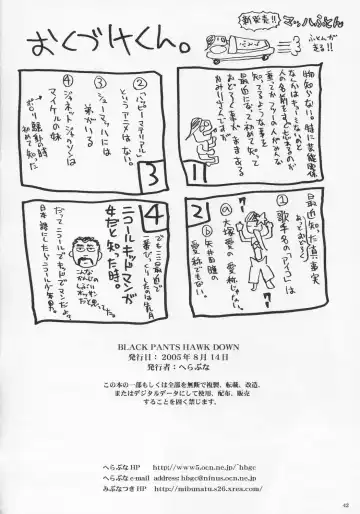 新発売!!
マッハふとん
ふとんが
走る!!
おくづけくん。
1
物知らない。特に芸能関係
なんかはもうこないのと
人の名前をすっかり忘れるのが
重ってかファーの人がみんな
知ってるような事を
最近になって初めて知って
おどろく事がままある
2
最近知った真実
あっとおどろく
①
歌手名の「アイコ」は
ⓐ大塚愛の愛称じゃない。
ⓑ矢井田瞳の
愛称でもない。
3
②
「ハッピーマテリアル」
というアニメはない。
③
シューマッハには
弟がいる
④
ジャネット・ジャクソンは
マイケルの妹
ポロリ騒動の時
初めて知った
4
でもここ最近で
一番びっくりしたのは先月
ニコールキッドマンが
女だと知った時。
だってニコールでキッドでマンだよ。
日本語にしたらニコールが年男だ。
BLACK PANTS HAWK DOWN
発行日：2005年8月14日
発行者：へらぶな
この本の一部もしくは全部を無断で複製、転載、改造、
またはデジタルデータにして使用、配布、販売
することを固く禁じます。
へらぶなHP http://www5.ocn.ne.jp/~hbgc
へらぶなe-mail address hbgc@ninus.ocn.ne.jp
みぶなつきHP http://mibunatu.s26.xrea.com/
42